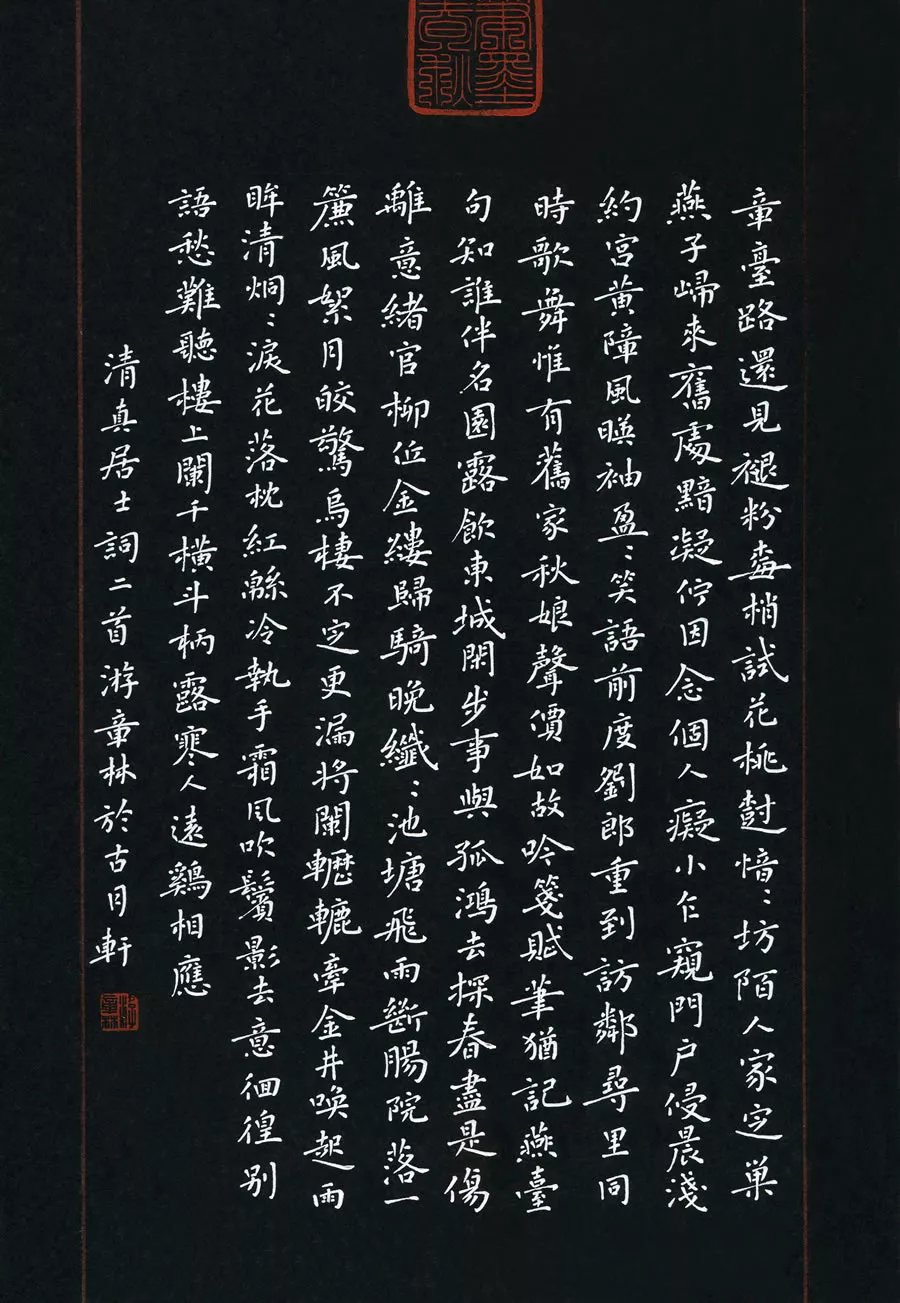 章臺路還見褪粉梅梢試花桃尌愔〻坊陌人家定巢
燕子歸來舊處黯凝佇因念個人癡小乍窺門戶侵晨淺
約宮黃障風暎袖盈〻笑語前度劉郎重到訪鄰尋里同
時歌舞惟有舊家秋娘聲價如故吟箋賦筆猶記燕臺
句知誰伴名園露飲東城閑步事與孤鴻去探春盡是傷
離意緒官柳低金縷歸騎晚纖〻池塘飛雨斷腸院落一
簾風絮月皎驚烏棲不定更漏將闌轣轆牽金井喚起兩
眸清炯〻淚花落枕紅緜冷執手霜風吹鬢影去意徊徨別
語愁難聽樓上闌干橫斗柄露寒人遠鷄相應
清真居士詞二首游章林於古月軒
游章林